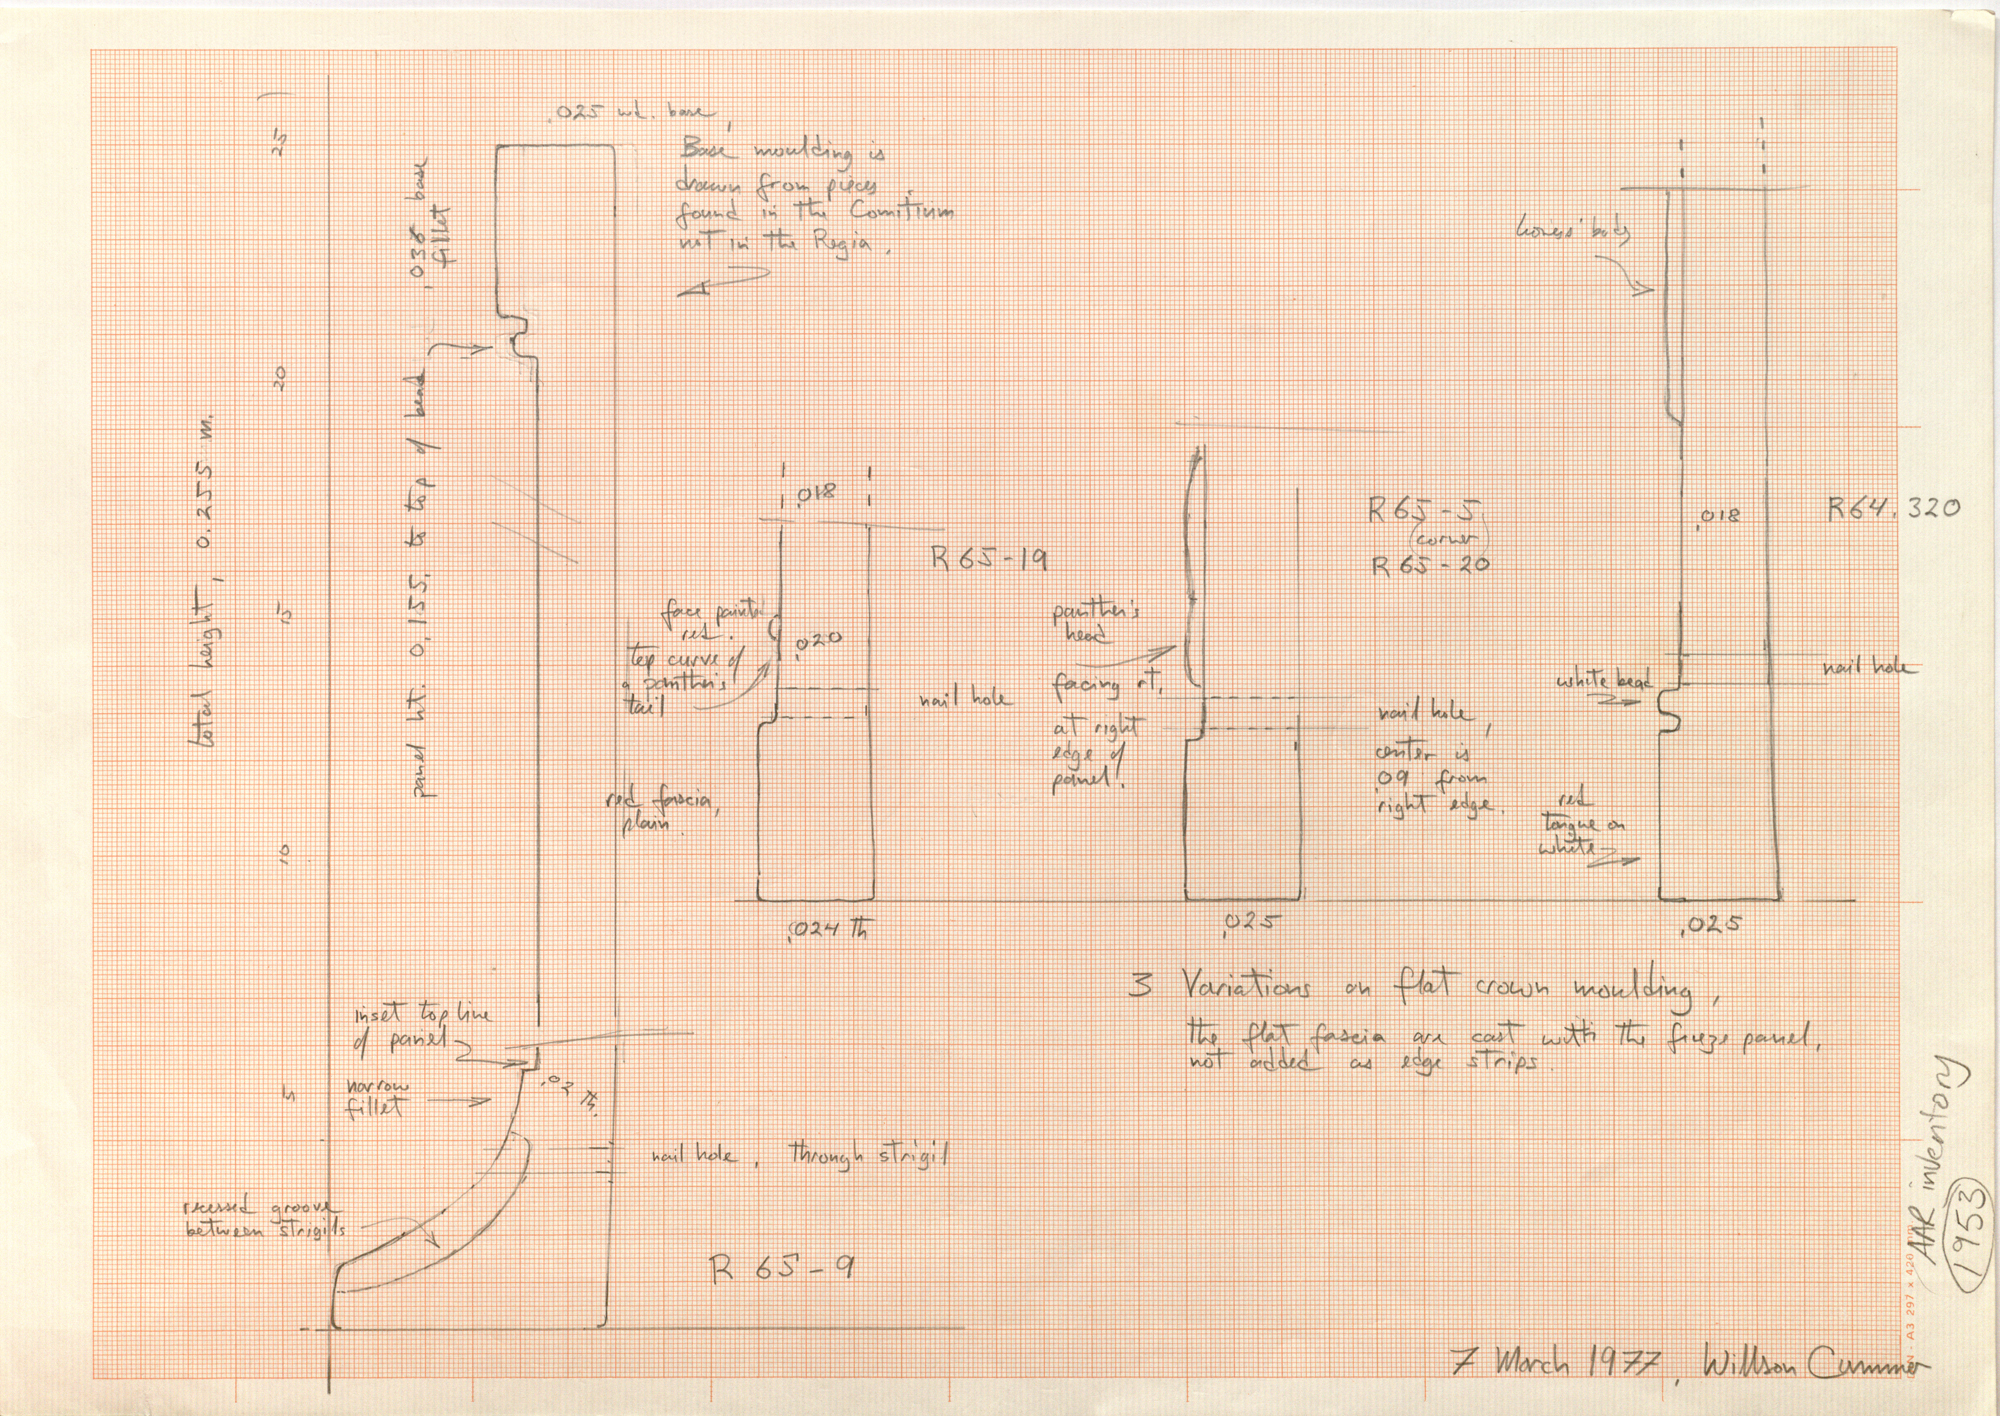 .025 wd. base,
Base moulding is
drawn from pieces
found in the Comitium
not in the Regia.
.038 base
fillet
panel ht. 0.155. to top of bead
total height, 0.255 m.
25
20
15
10
5
inset top line
of panel
narrow
fillet
.02 th.
nail hole, through strigil
recessed groove
between strigils
R 65-9
.018
R 65-19
face painted
red.
top curve of
a panther's
tail
.020
nail hole
red fascia,
plain.
.024 th
R 65-5
(corner)
R 65-20
panther's
head
facing rt.
at right
edge of
panel.
nail hole,
center is
.09 from
right edge.
.025
lioness' body
.018
R 64.320
white bead
nail hole
red
tongue on
white
.025
3 Variations on flat crown moulding,
the flat fascia are cast with the frieze panel,
not added as edge strips.
AAR inventory
1953
A3 297 x 420 mm
7 March 1977, Willson Cummer